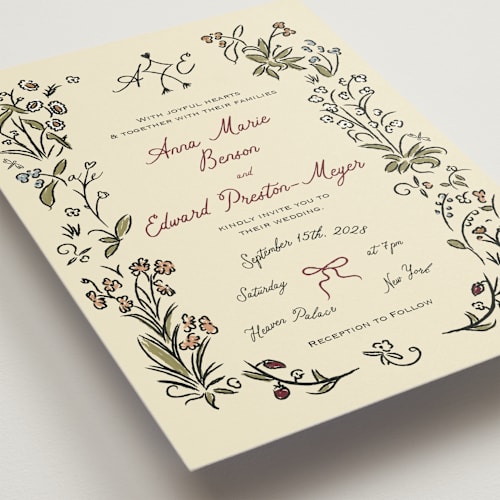 A E
WITH JOYFUL HEARTS
& TOGETHER WITH THEIR FAMILIES
Anna Marie
Benson
and
Edward Preston-Meyer
KINDLY INVITE YOU TO
THEIR WEDDING.
September 15th, 2028
Saturday at 7pm
Heaven Palace New York
RECEPTION TO FOLLOW